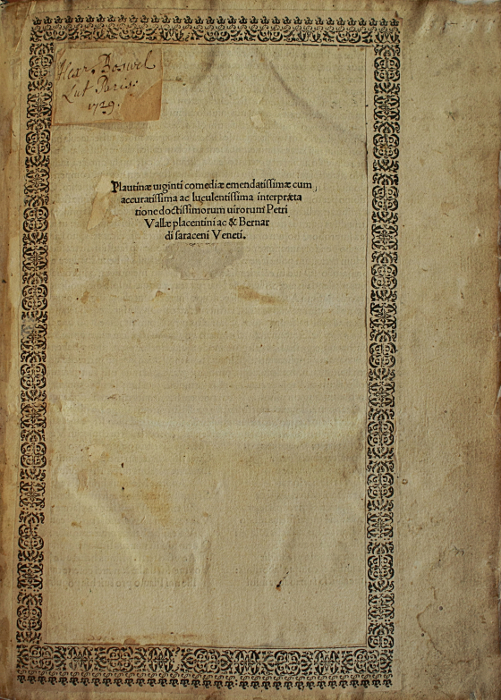 Alexr. Boswel
Lut Paris:
1729.
Plautinæ uiginti comediæ emendatissimæ cum
accuratissima ac luculentissima interpræta
tione doctissimorum uirorum Petri
Vallæ placentini ac & Bernar
di saraceni Veneti.